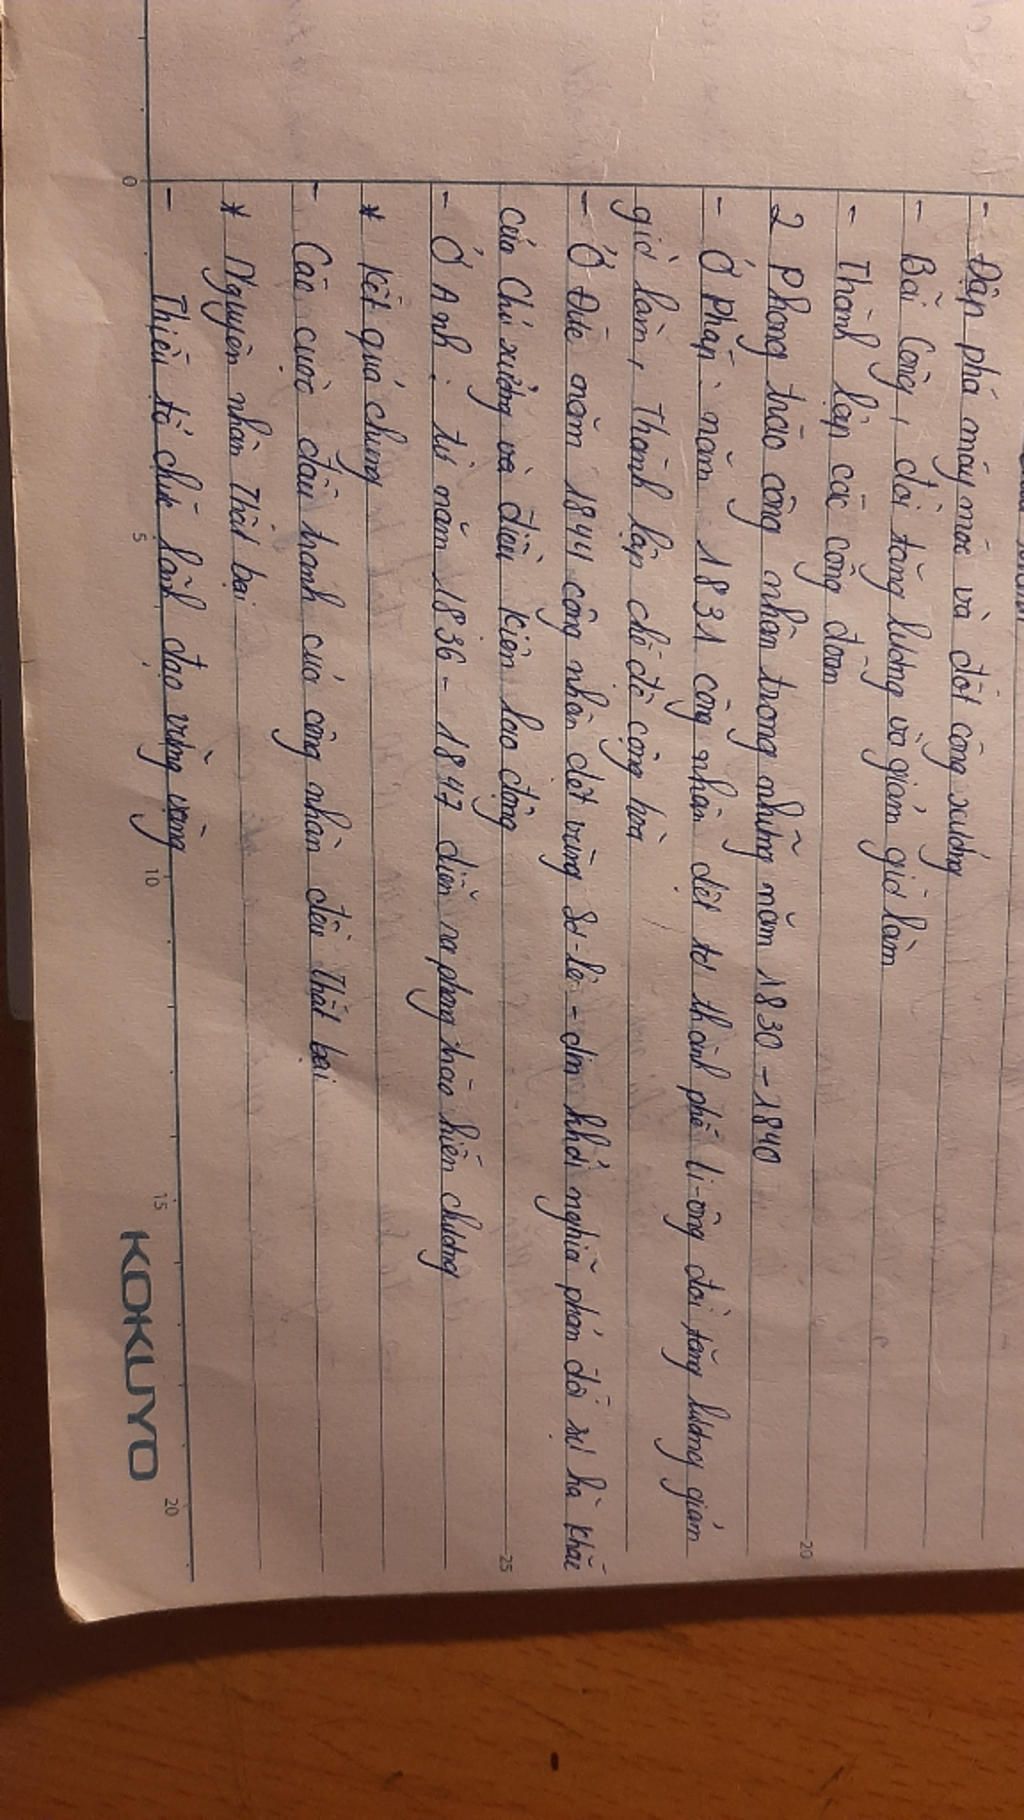 - Đập phá máy móc và đốt công xưởng
- Bãi Công, đòi tăng lương và giảm giờ làm
- Thành lập các công đoàn
2 Phong trào công nhân trong những năm 1830 - 1840
- Ở Pháp: năm 1831 công nhân dệt tơ thành phố li-ông đòi tăng lương giảm
giờ làm, thành lập chế độ cộng hòa
- Ở Đức năm 1844 công nhân dệt vùng Sơ-lê-din khởi nghĩa phản đối sự hà khắc
của Chủ xưởng và điều kiện lao động
- Ở Anh: từ năm 1836 - 1847 diễn ra phong trào hiến chương
* Kết quả chung
- Các cuộc đấu tranh của công nhân đều thất bại
* Nguyên nhân thất bại
- Thiếu tổ chức lãnh đạo vững vàng
0 5 10 15 20
20
25
KOKUYO